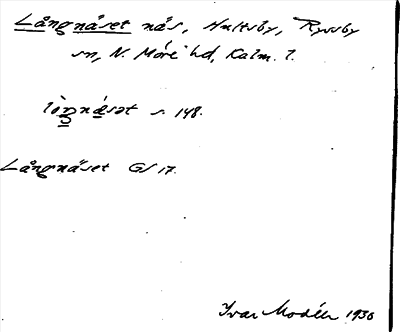 Långnäset näs, Hultsby, Ryssby
sn, N. Möre hd, Kalm. l.
lòŋnä̀sət s. 148.
Långnäset GS 17.
Ivar Modéer 1930